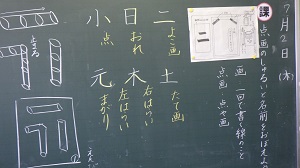 7月2日(木)
課 点画のしゅるいと名前をおぼえよう
画 一回で書く線のこと
点画 点や画
二 よこ画
土 たて画
日 おれ
木 右はらい 左はらい
小 点
元 まがり
とめる